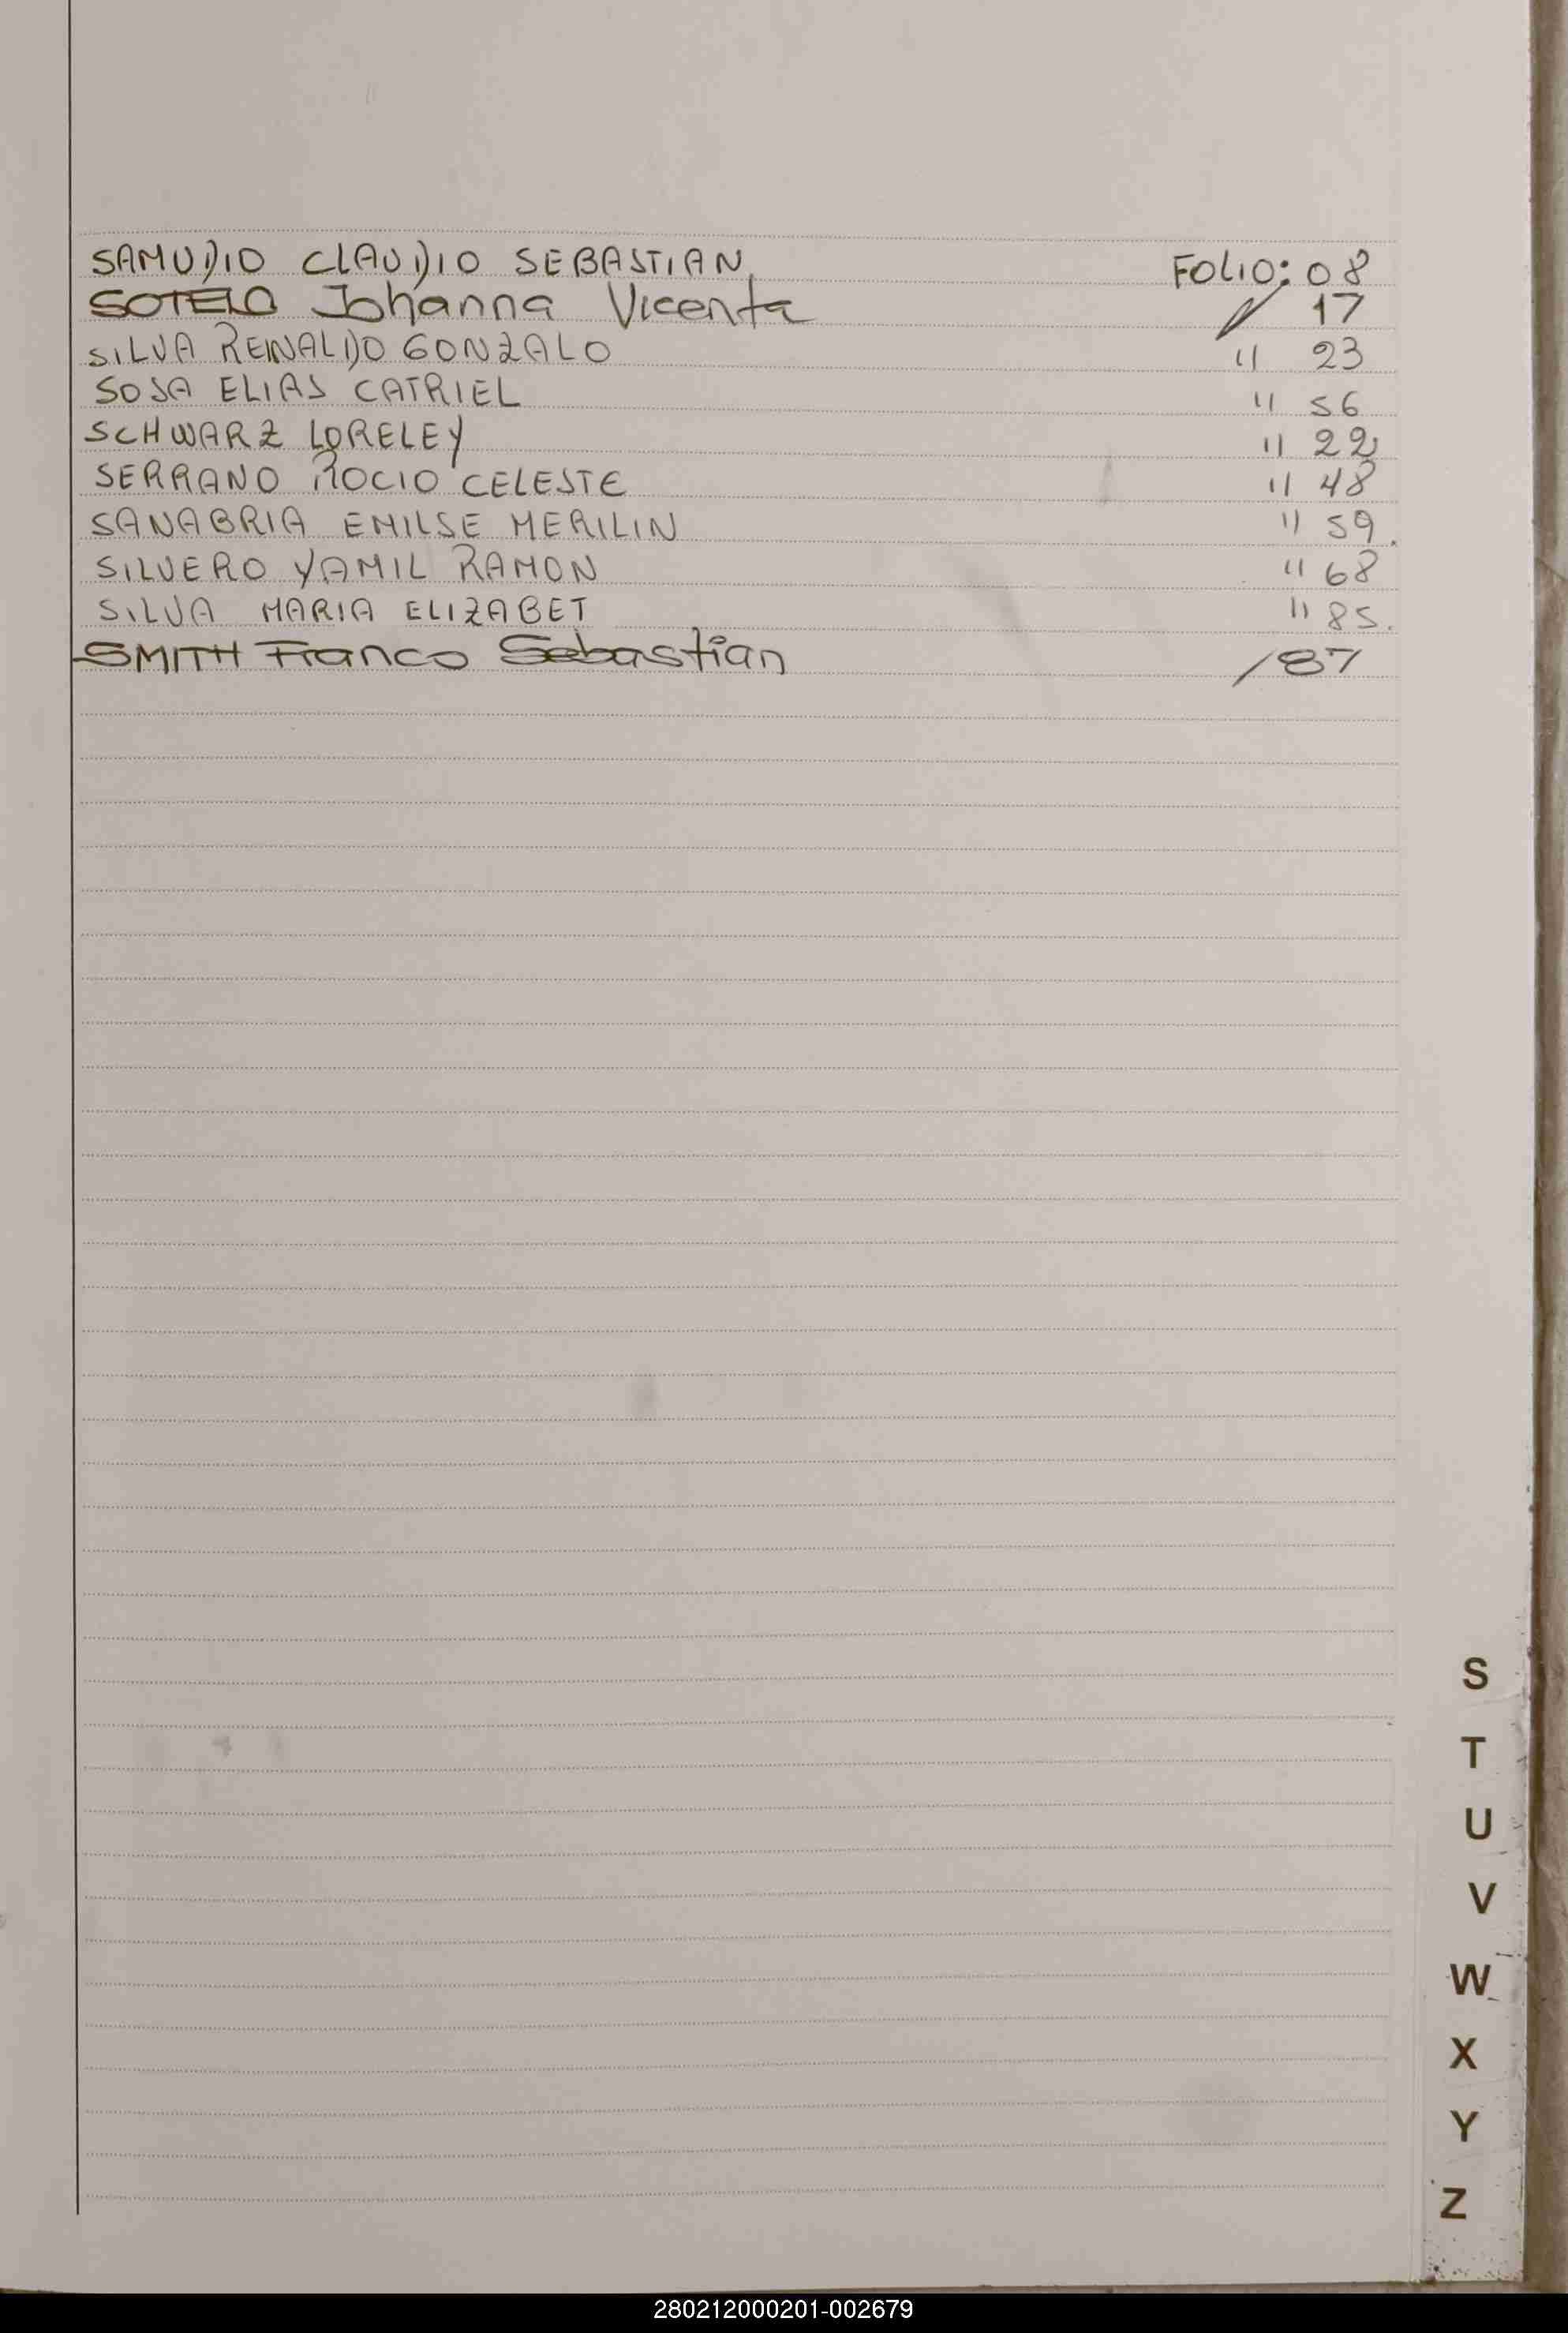 SAMUDIO CLAUDIO SEBASTIAN. FOLIO: 08
SOTELO Johanna Vicenta // 17
SILVA REINALDO GONZALO 11 23
SOSA ELIAS CATRIEL 11 56
SCHWARZ LORELEY 11 22
SERRANO ROCIO CELESTE 11 48
SANABRIA EMILSE MERILIN 11 59.
SILVERO YAMIL RAMON 11 68
SILVA MARIA ELIZABET 11 85.
SMITH Franco Sebastian / 87
S
T
U
V
W
X
Y
Z
280212000201-002679